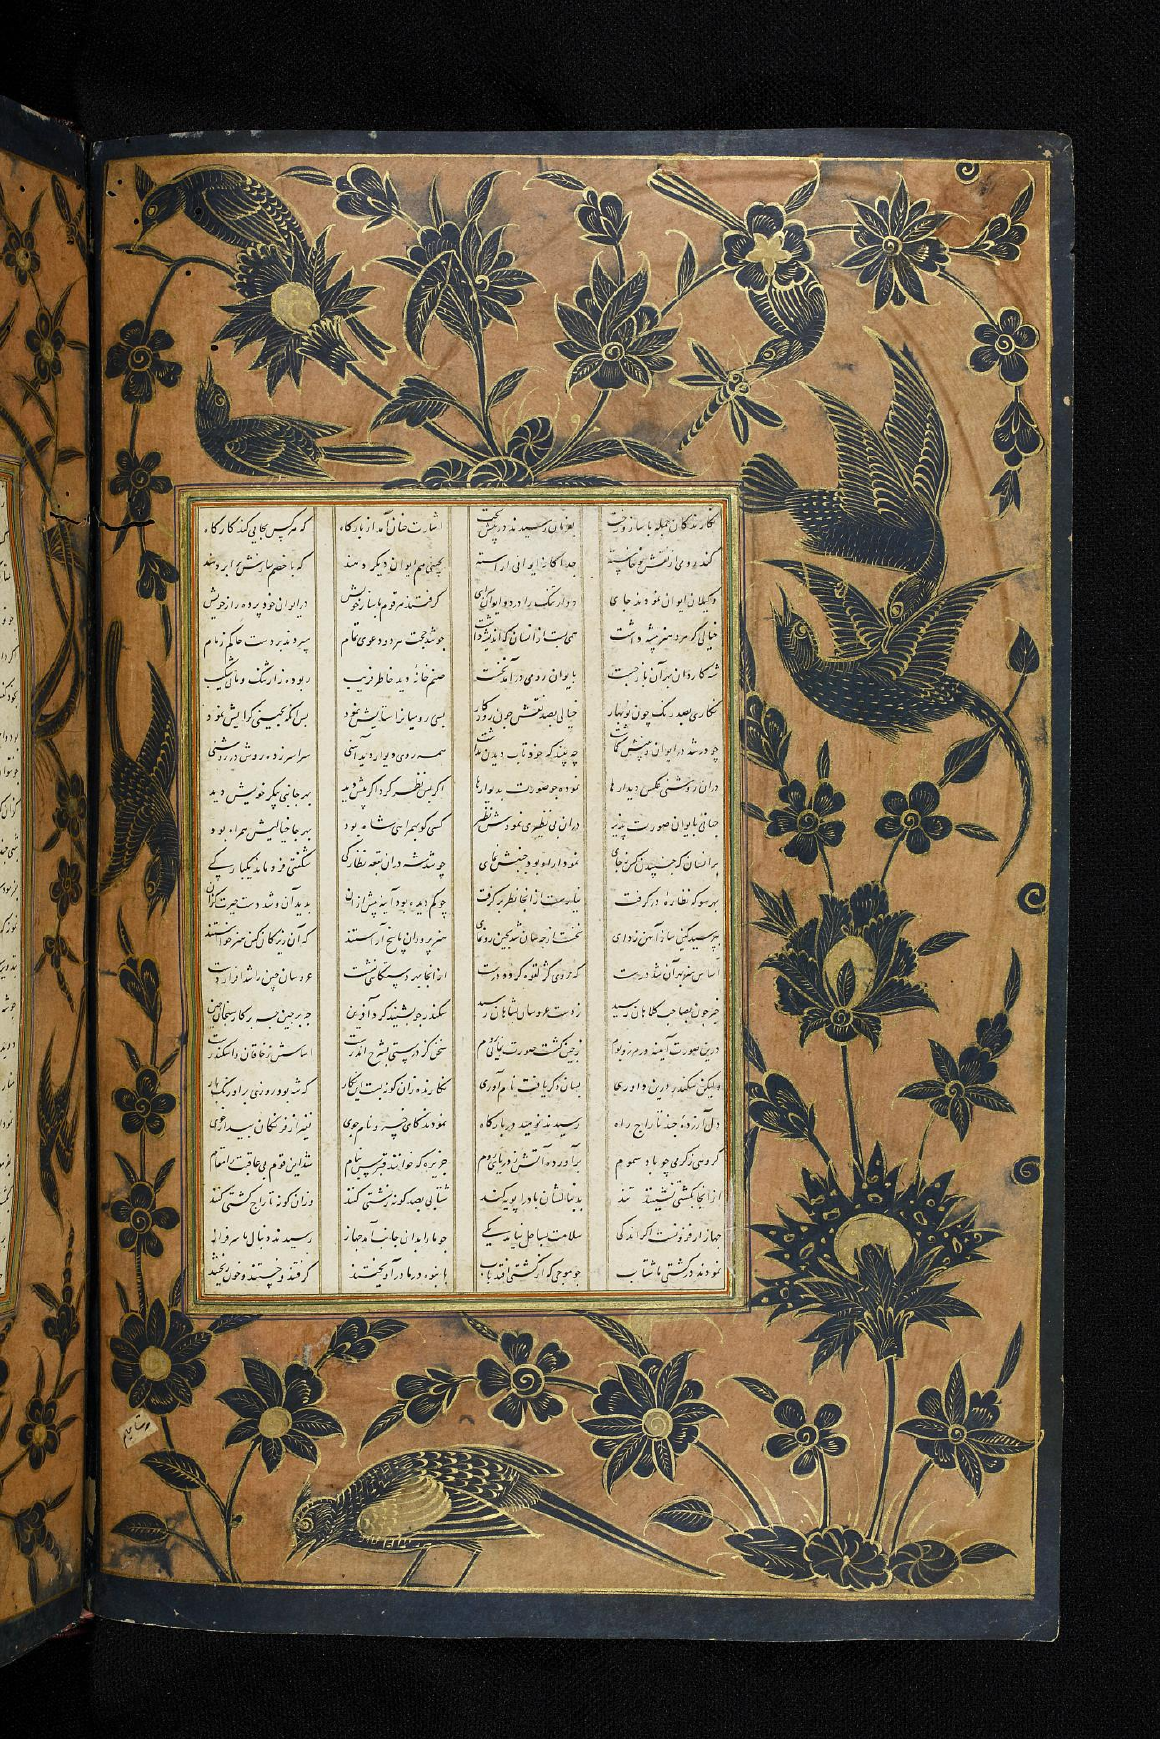 نگارندگان جمله با ساز و رخت بفرمان رسیدند در پیش تخت اشارت چنان آمد از بارگاه که هر کس بجایی کند کارگاه
کند روی جداگانه ایوانی آراسته ایوان دیگر دهند که با خصم سازش برابر نهند
وکیلان ایوان نمودند جای دو ارتنگ را در دو ایوان گرفتند هر قوم با ساز خویش در ایوان خود پرده راز خویش
خیالی که مرد هنرپیشه داشت همی ساخت زانسان که اندیشه داشت چو شد هر دو دعوی تمام سپردند بر دست حاکم زمام
شه کاردان بهر آن باز جست بایوان رومی درآمد نخست صنم خانه دید خاطر فریب ربوده ز ارتنگ و مانی شکیب
نگاری بصد رنگ چون نوبهار خیالی بصد نقش چون روزگار بسی رومیان را ستایش نمود پس آنگه بچینی گرایش نمود
چو در شد در ایوان و پیشش گماشت چه بیند که خود تاب دیدن نداشت همه روی دیوار دید آهنی سراسر زده روشن در روشنی
در آن روشنی عکس دیدارها نموده چو صورت بدیوارها اگر پس نظر کرد اگر پیش دید بهر جانبی پیکر خویش دید
جهانی بایوان صورت پذیر در آن بی نظیری نمودش نظیر کسی کو بهمراهی شاه بود بهر جا خیالیش همراه بود
بر آنسان که جنبیدن کس بجای نمودار او بود جنبش نمای چو شه شد در آن بقعه نظارگی شگفتی فرو ماند یکبارگی
بهر سو که نظاره در گرفت از آنجا نظر بر گرفت چو گم دیده بود آینه پیش از آن بدید آن و شد دست حیرت گزان
بپرسید کین ساز آهن زدای نخست از جهان شد بچین رونمای هنرپروران پاسخ آراستند که آن زیرکان کین هنر خواستند
اساس هنر بهر آن شد درست از آنجا بهر عروسان چین را شد ابزار دست
خبر چون بصاحب کلاهان رسید ز دست عروسان بشاهان رسید سکندر چو بشنید کرد آفرین
درین صورت آیینه در مرز و بوم ز چین گشت صورت نمای بروم سخن گر درستی بشرح اندرست اساسش ز خاقان نه اسکندرست
ولیکن سکندر درین داوری بسان دگر یافت نام آوری نگارنده زان گونه بست این نگار که شه بود روزی بر اورنگ بار
دل آزرده چند تاراج راه رسیدند نومید در بارگاه نمودند کای خسرو نامجوی نفیر از فرنگان بیدادخوی
گروهی ز گرمی چو باد سموم برآورده آتش ز دریای روم جزیره که خوانند قبرس بنام شد این قوم بی عاقبت را مقام
از آنجا بکشتی نشینند تند بدنبالشان باد را پویه کند شتابی بصد گونه زشتی کنند وزان گونه تاراج کشتی کنند
جهاز ار فزونست اگر اندکی سلامت بساحل نیاید یکی چو ما را بدان جانب آمد جهاز رسیدند دنبال ما
نمودند در کشتی ما شتاب چو موجی که از کشتی افتد بآب بانبوه در ما درآویختند گرفتند و جستند و خون ریختند